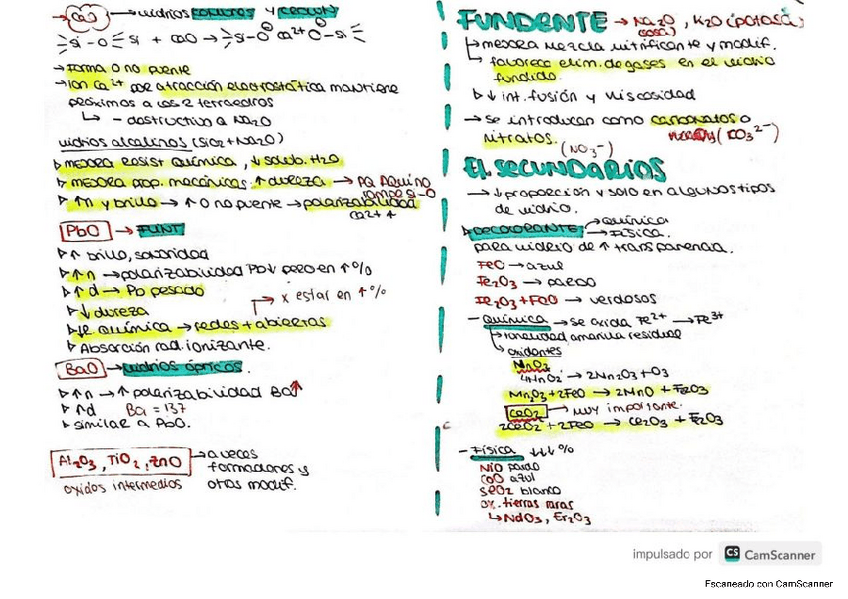 CaO → vidrios comunes y crown
≡Si-O⁻≡Si + CaO → ≡Si-O⊖ Ca²⁺ ⊖O-Si≡
→ Forma O no puente
→ Ion Ca²⁺ por atracción electrostática mantiene
próximos a los 2 tetraedros
↳ - destructivo a Na₂O
vidrios alcalinos (SiO₂+Na₂O)
▹ mejora resist química, ↓ solub. H₂O
▹ mejora prop. mecánicas: ↑ dureza → PQ Aquí no
rompe Si-O
▹ ↑n y brillo → ↑ O no puente → polarizabilidad
Ca²⁺ +
PbO → FLINT
▹ ↑ brillo, sonoridad
▹ ↑n → polarizabilidad Pb↓ pero en ↑%
▹ ↑d → Pb pesado
▹ ↓ dureza → x estar en ↑%
▹ ↓R. química → redes + abiertas
▹ Absorción rad. ionizante.
BaO → vidrios ópticos.
▹ ↑n → ↑ polarizabilidad Ba↑
▹ ↑d Ba = 137
▹ similar a PbO.
Al₂O₃, TiO₂, ZnO → a veces
formadores y
óxidos intermedios otras modif.
FUNDENTE → Na₂O, K₂O (potasa)
(sosa)
↳ mejora mezcla vitrificante y modif.
↳ favorece elim. de gases en el vidrio
fundido.
▹ ↓ int. fusión y viscosidad
→ se introducen como carbonatos o
nitratos. (CO₃²⁻)
(NO₃⁻)
El. SECUNDARIOS
→ ↓ proporción y solo en algunos tipos
de vidrio.
▹ DECOLORANTE: → química
→ Física.
para vidrio de ↑ transparencia.
FeO → azul
Fe₂O₃ → pardo
Fe₂O₃ + FeO → verdosos
- Química → se oxida Fe²⁺ → Fe³⁺
→ tonalidad amarilla residual
↳ oxidantes
MnO₂
4MnO₂ → 2Mn₂O₃ + O₃
Mn₂O₃ + 2FeO → 2MnO + Fe₂O₃
CeO₂ → MUY importante.
2CeO₂ + 2FeO → Ce₂O₃ + Fe₂O₃
- Física ↓↓↓ %
NiO pardo
CoO azul
SeO₂ blanco
ox. tierras raras
↳ NdO₃, Er₂O₃
impulsado por CS CamScanner
Escaneado con CamScanner